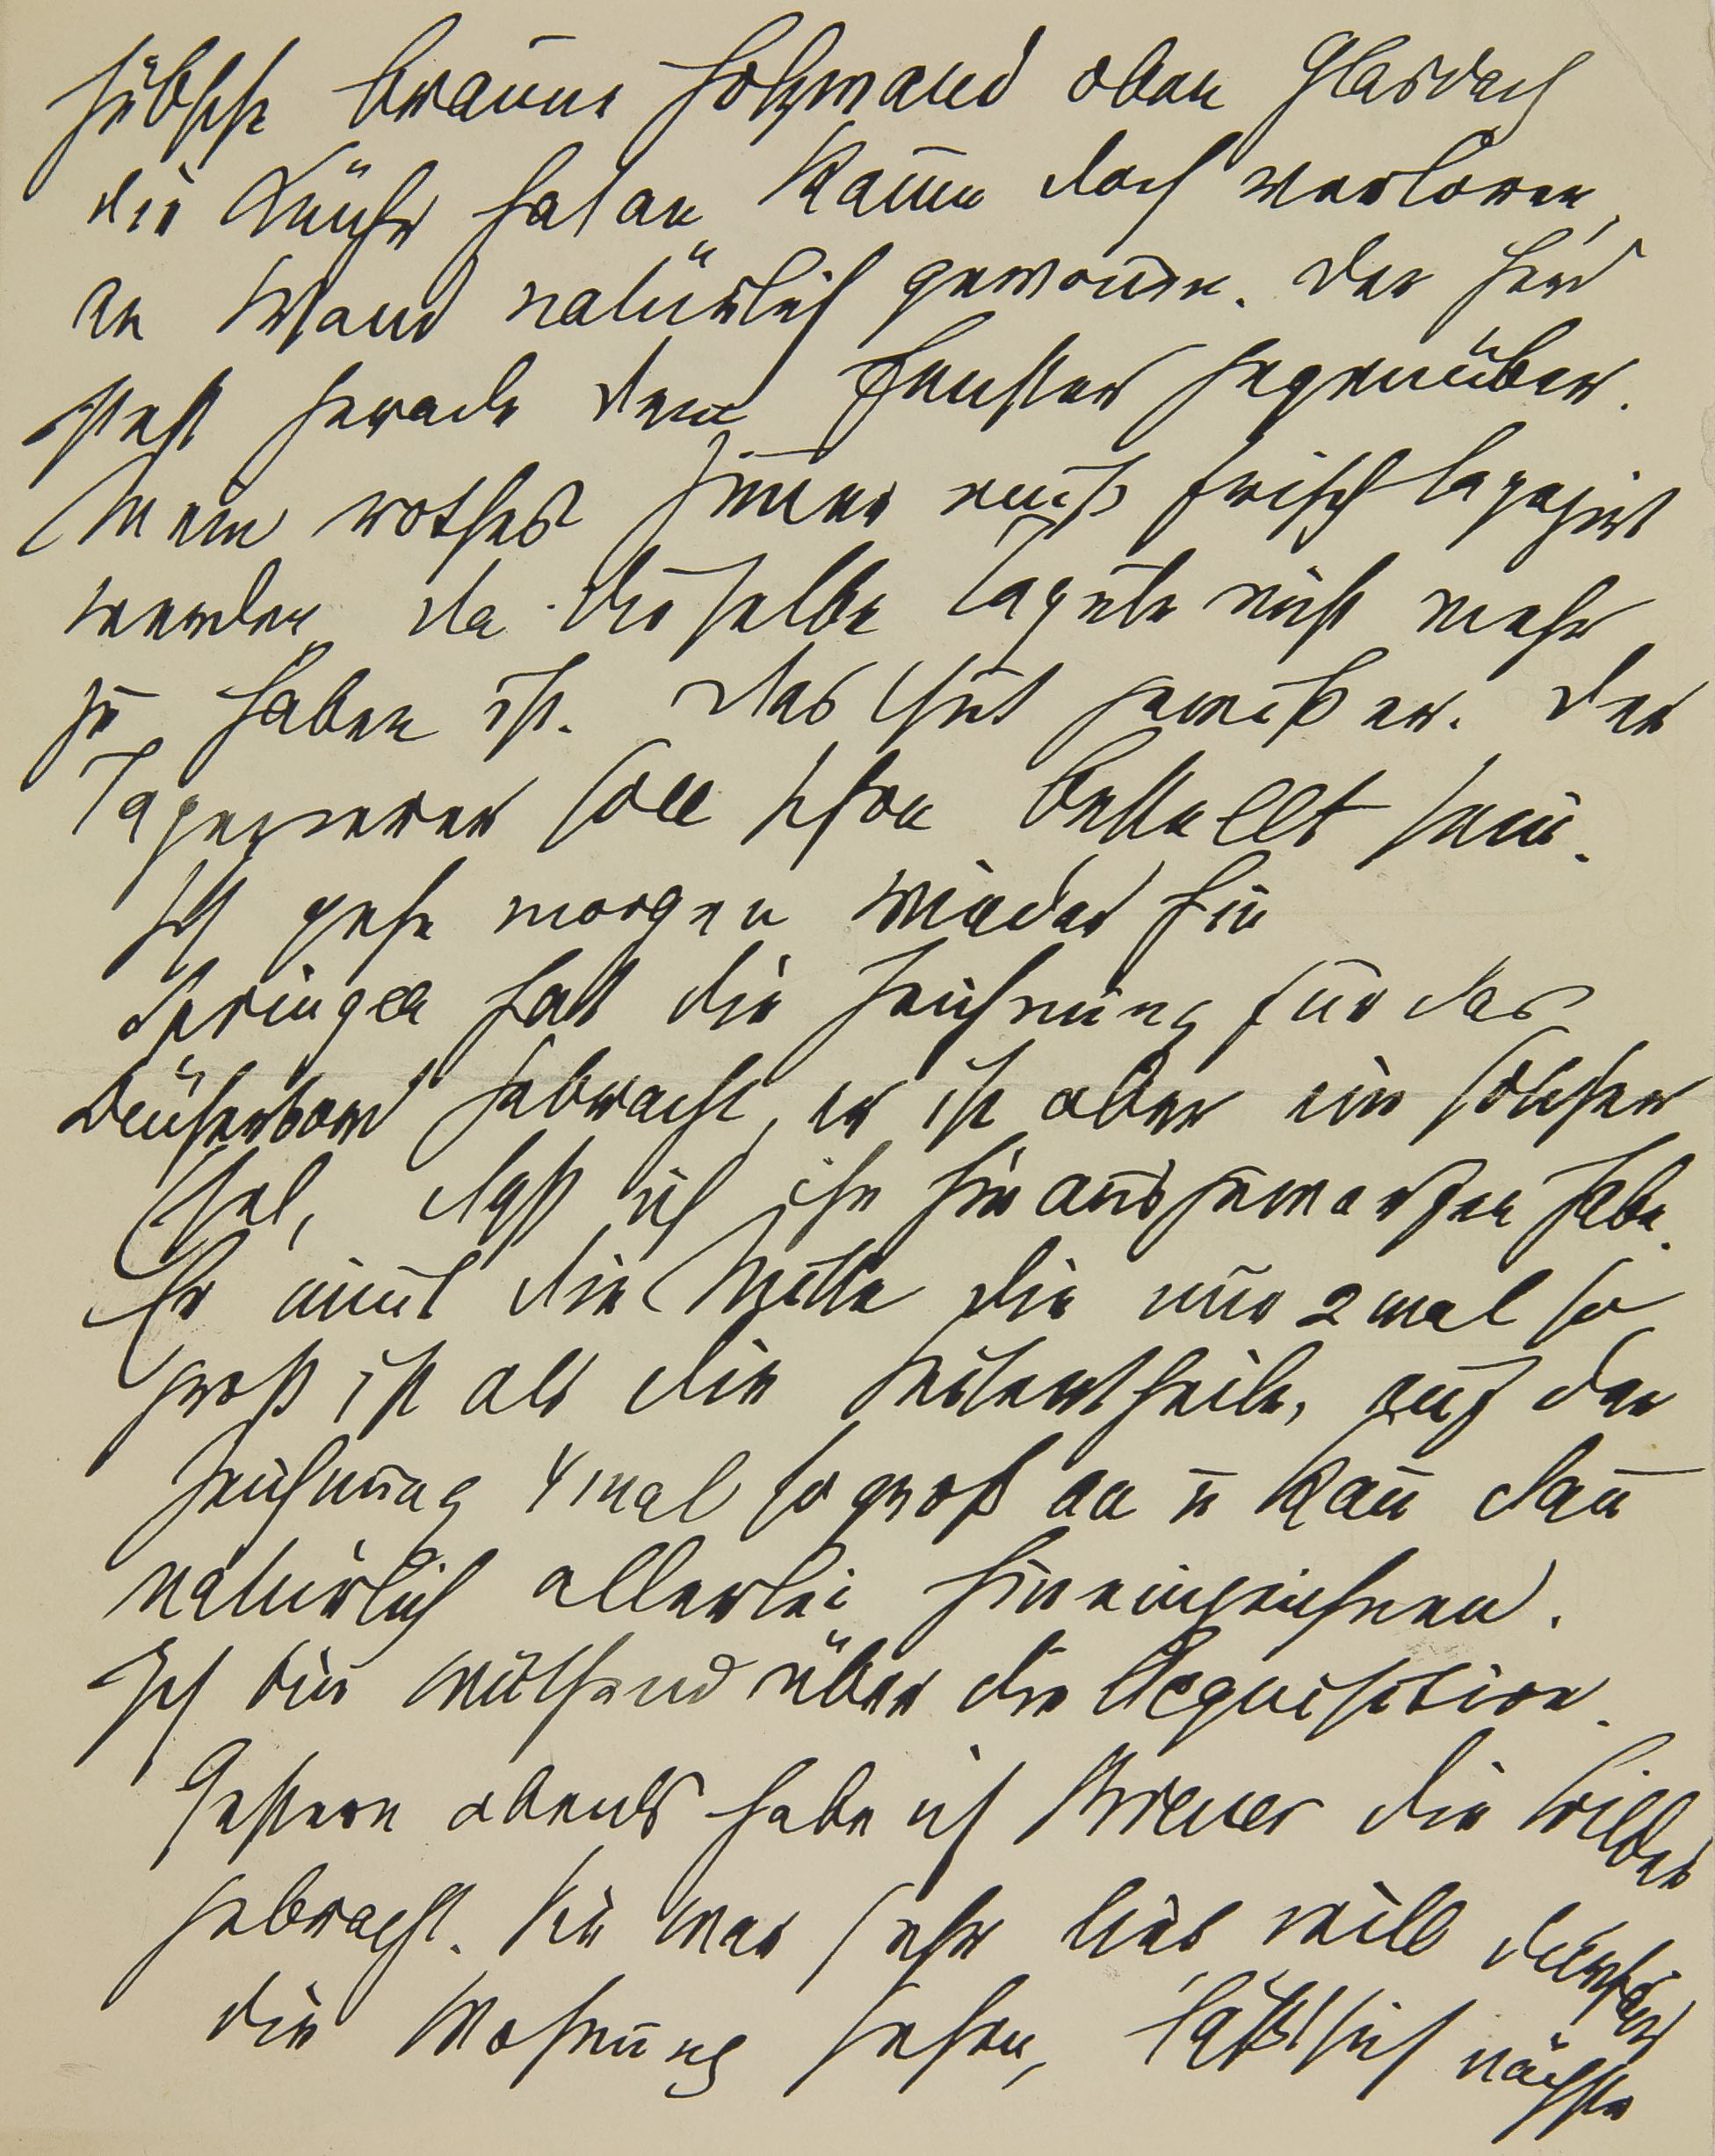 hübsche braune Holzwand oben Glasdach
die Küche hat an Raum doch verloren,
an Wand natürlich gewonnen. Der Herd
steht gerade dem Fenster gegenüber.
Mein rothes Zimmer muß frisch tapezirt
werden da dieselbe Tapete nicht mehr
zu haben ist. Das thut gewiß er. Der
Tapezierer soll schon bestellt sein.
Ich gehe morgen wieder hin
Springer hat die Zeichnung für das
Bücherbord gebracht, er ist aber ein solcher
Esel, daß ich ihn hinausgeworfen habe.
Er nimt die Mitte die nur 2 mal so
groß ist als die Seitentheile, auf der
Zeichnung 4 mal so groß an u kan̄ dan̄
natürlich allerlei hineinzeichnen.
Ich bin wüthend über die Acquisition.
Gestern abends habe ich Breuer die Bilder
gebracht. Sie war sehr lieb will
die Wohnung sehen, läßt sich nächste